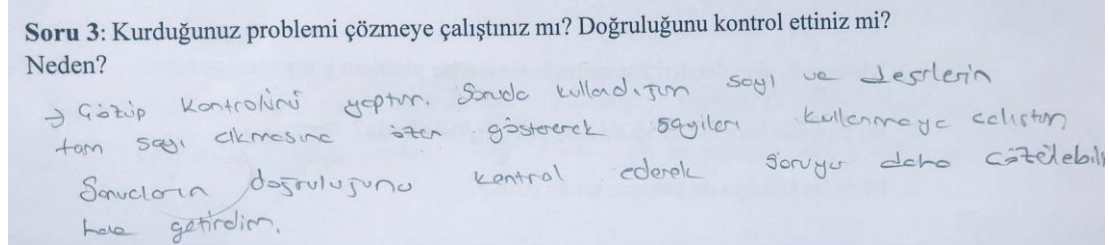 Soru 3: Kurduğunuz problemi çözmeye çalıştınız mı? Doğruluğunu kontrol ettiniz mi?
Neden?
→ Çözüp kontrolünü yaptım. Soruda kullandığım sayı ve değerlerin
tam sayı çıkmasına özen göstererek sayıları kullanmaya çalıştım
Sonuçların doğruluğunu kontrol ederek soruyu daha çözülebilir
hale getirdim.